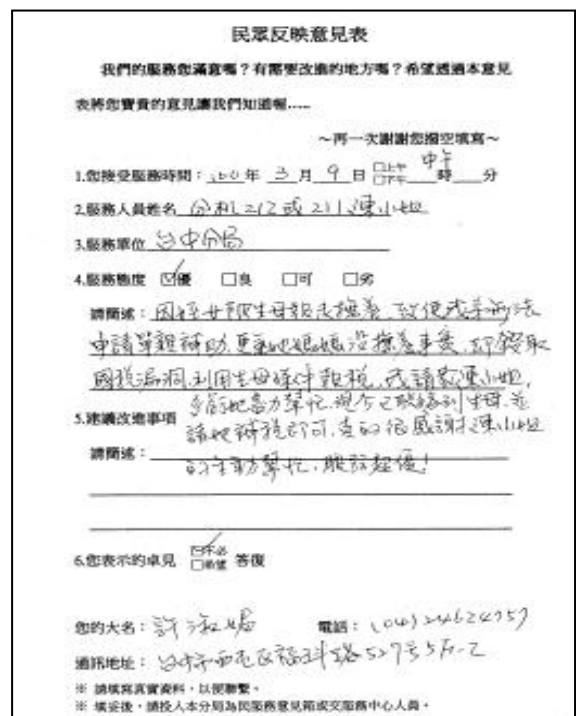 民眾反映意見表
我們的服務您滿意嗎？有需要改進的地方嗎？希望透過本意見
表將您寶貴的意見讓我們知道喔.....
～再一次謝謝您撥空填寫～
1.您接受服務時間：100年 3 月 9 日 □上午 □下午 中午 時 分
2.服務人員姓名 分機212或211陳小姐
3.服務單位 台中分局
4.服務態度 ☑優 □良 □可 □劣
請簡述：因姪女被生母報去撫養，致使我無法
申請單親補助，更氣她媽媽沒撫養事實，卻
國稅漏洞，利用生母條件報稅，我請教陳小姐，
5.建議改進事項
幫忙，現今已聯絡到生母，並
請她補稅即可，真的很感謝陳小姐
請簡述：
的主動幫忙，服務超優！
6.您表示的卓見 ☑不必 □希望 答復
您的大名：許淑 電話：(04)24624757
通訊地址：台中市西屯區福科路527号5F-2
※ 請填寫真實資料，以便聯繫。
※ 填妥後，請投入本分局為民服務意見箱或交服務中心人員。